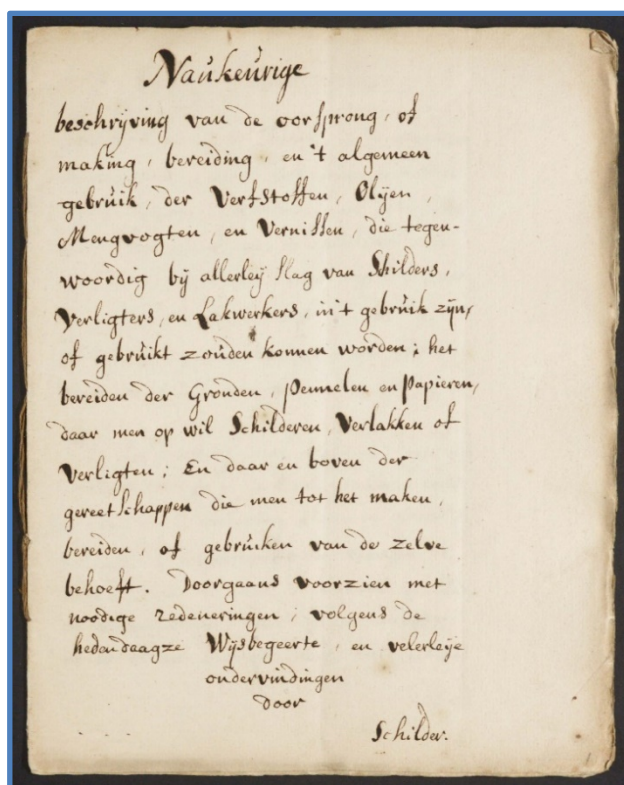 Naukeurige
beschrijving van de oorsprong, of
making, bereiding, en 't algemeen
gebruik, der Verfstoffen, Olyen,
Mengvogten, en Vernissen, die tegen-
woordig bij allerleij slag van Schilders,
Verligters, en Lakwerkers, in't gebruik zijn,
of gebruikt zouden konnen worden; het
bereiden der Gronden, penneelen en papieren,
daar men op wil Schilderen, Verlakken of
Verligten; En daar en boven der
gereetschappen die men tot het maken,
bereiden, of gebruiken van de zelve
behoeft. Doorgaans voorzien met
noodige redeneringen; volgens de
hedendaagze Wijsbegeerte, en velerleije
ondervindingen
door
Schilder.